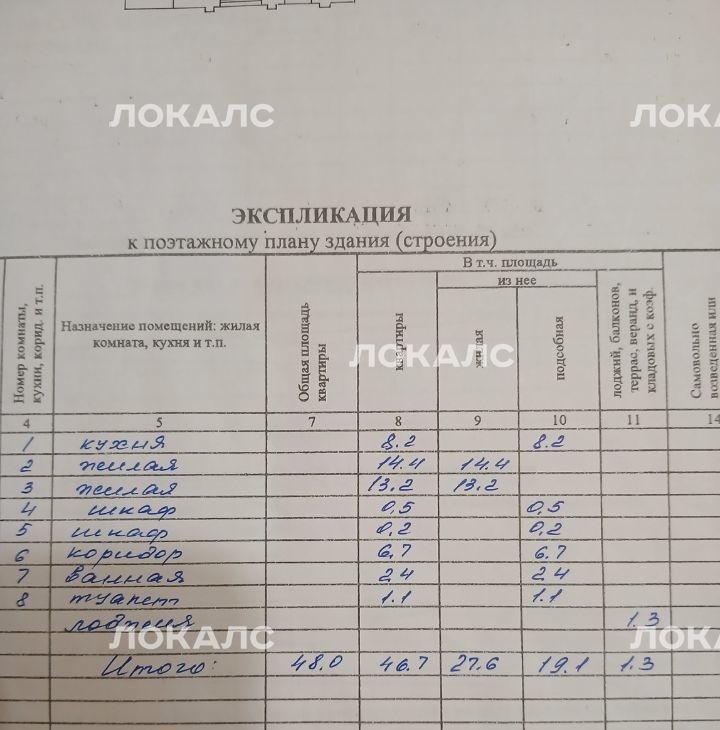 ЛОКАЛС ЛОКАЛС
ЭКСПЛИКАЦИЯ
к поэтажному плану здания (строения)
Номер комнаты, кухни, корид. и т.п.
Назначение помещений: жилая комната, кухня и т.п.
Общая площадь квартиры
В т.ч. площадь
квартиры
из нее
жилая
подсобная
лоджий, балконов, террас, веранд, и кладовых с коэф.
Самовольно возведенная или
ЛОКАЛС
4 5 7 8 9 10 11 14
1 кухня 8.2 8.2
2 жилая 14.4 14.4
3 жилая 13.2 13.2
4 шкаф 0,5 0,5
5 шкаф 0,2 0,2
6 коридор 6.7 6.7
7 ванная 2.4 2.4
8 туалет 1.1 1.1
лоджия 1.3
ЛОКАЛС ЛОКАЛС
Итого: 48.0 46.7 27.6 19.1 1.3